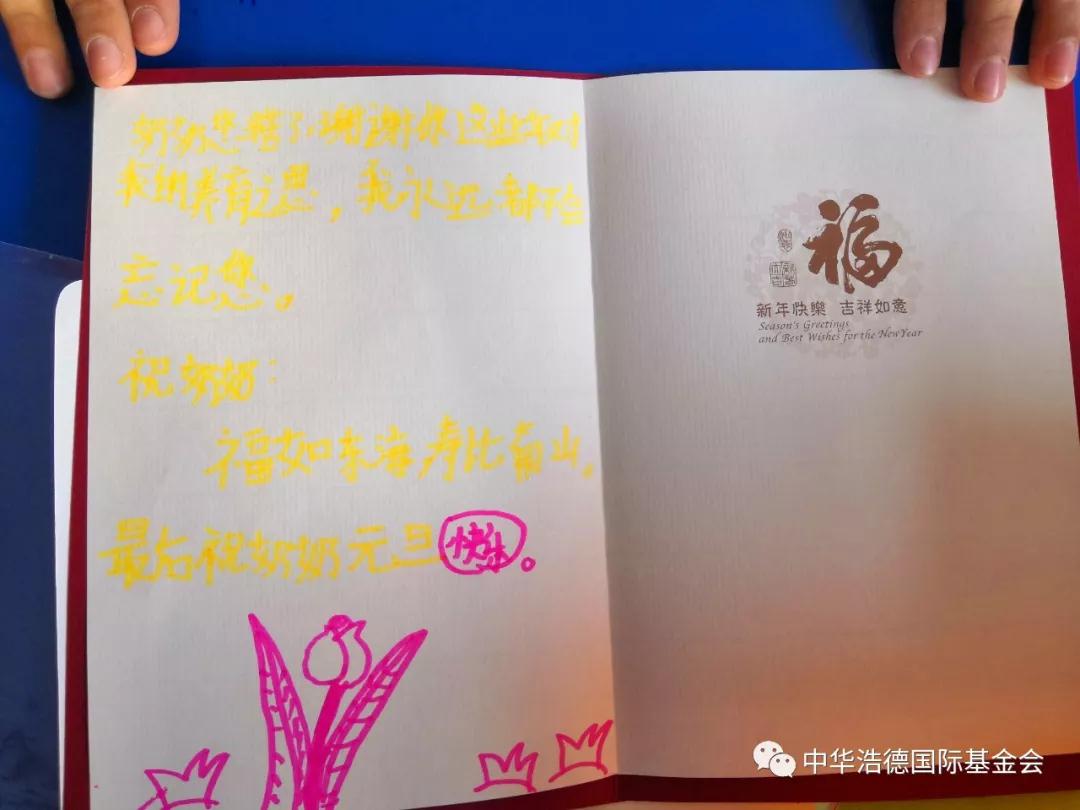 奶奶您辛苦了,谢谢你这些年对
我的养育之恩,我永远都不会
忘记您。
祝奶奶:
福如东海 寿比南山。
最后祝奶奶元旦快乐。
福
新年快樂 吉祥如意
Season's Greetings
and Best Wishes for the New Year
中华浩德国际基金会